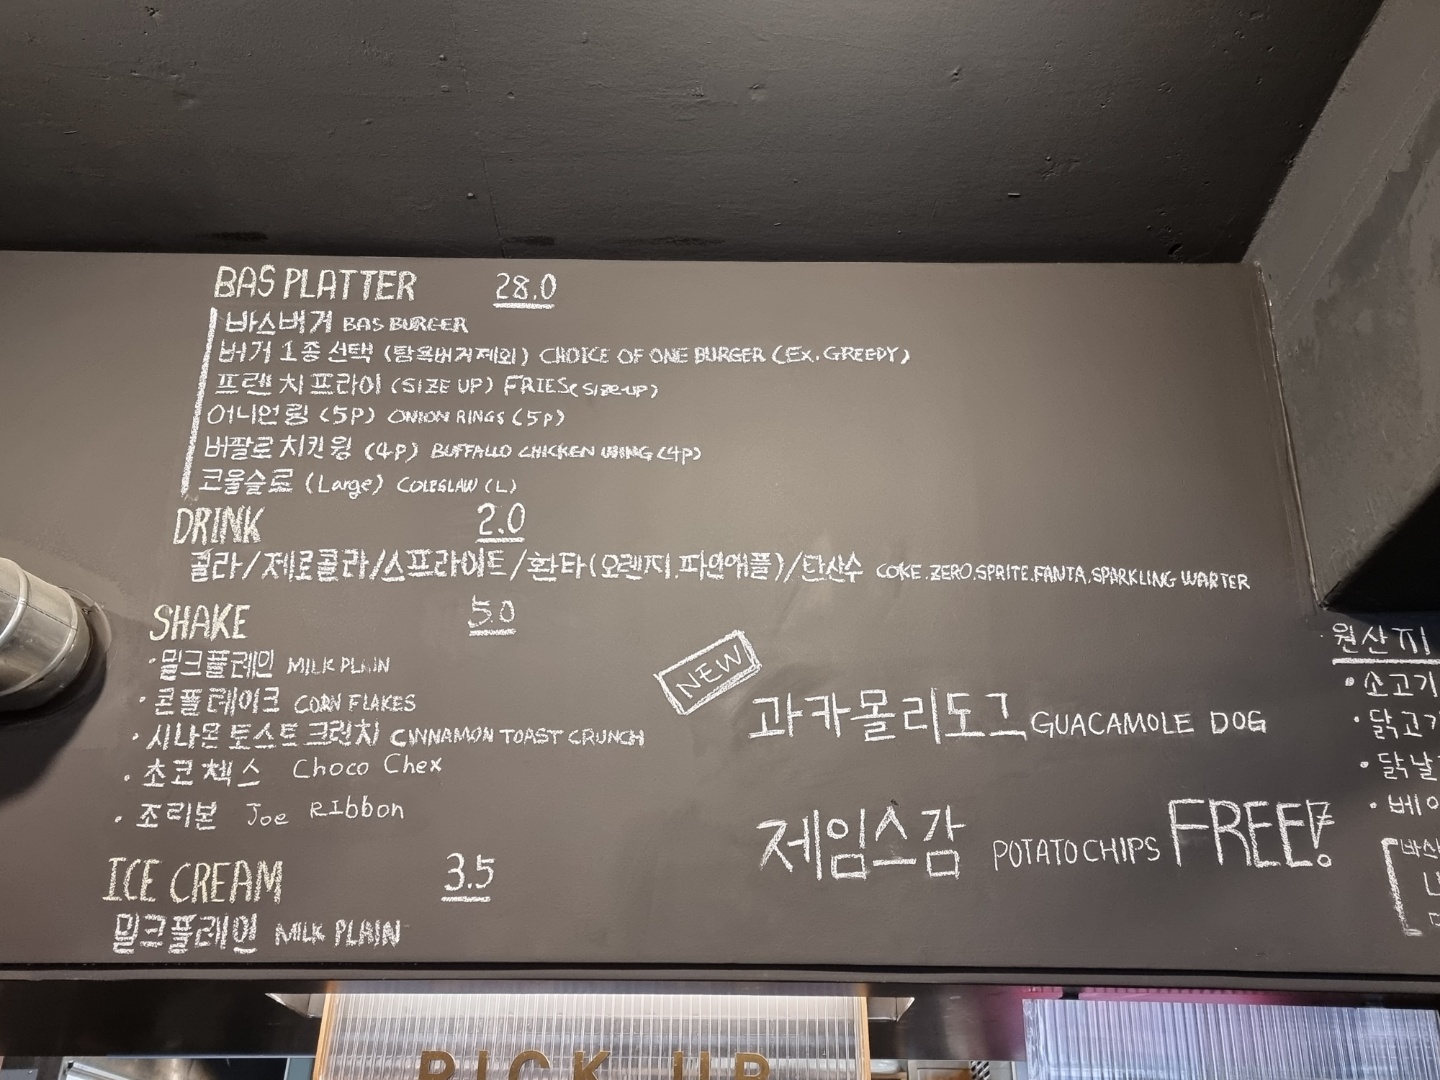 BAS PLATTER 28.0
바스버거 BAS BURGER
버거 1종 선택 (탐욕버거제외) CHOICE OF ONE BURGER (EX. GREEDY)
프렌치프라이 (SIZE UP) FRIES (SIZE-UP)
어니언링 (5P) ONION RINGS (5P)
버팔로치킨윙 (4P) BUFFALO CHICKEN WING (4P)
코울슬로 (Large) COLESLAW (L)
DRINK 2.0
콜라/제로콜라/스프라이트/환타(오렌지.파인애플)/탄산수 COKE.ZERO.SPRITE.FANTA.SPARKLING WARTER
SHAKE 5.0
·밀크플레인 MILK PLAIN
·콘플레이크 CORN FLAKES
·시나몬 토스트 크런치 CINNAMON TOAST CRUNCH
·초코첵스 Choco Chex
·조리본 Joe RIbbon
ICE CREAM 3.5
밀크플레인 MILK PLAIN
NEW
과카몰리도그 GUACAMOLE DOG
제임스감 POTATO CHIPS FREE!
원산지
·소고기
·닭고기
·닭날
·베이
PICK UP